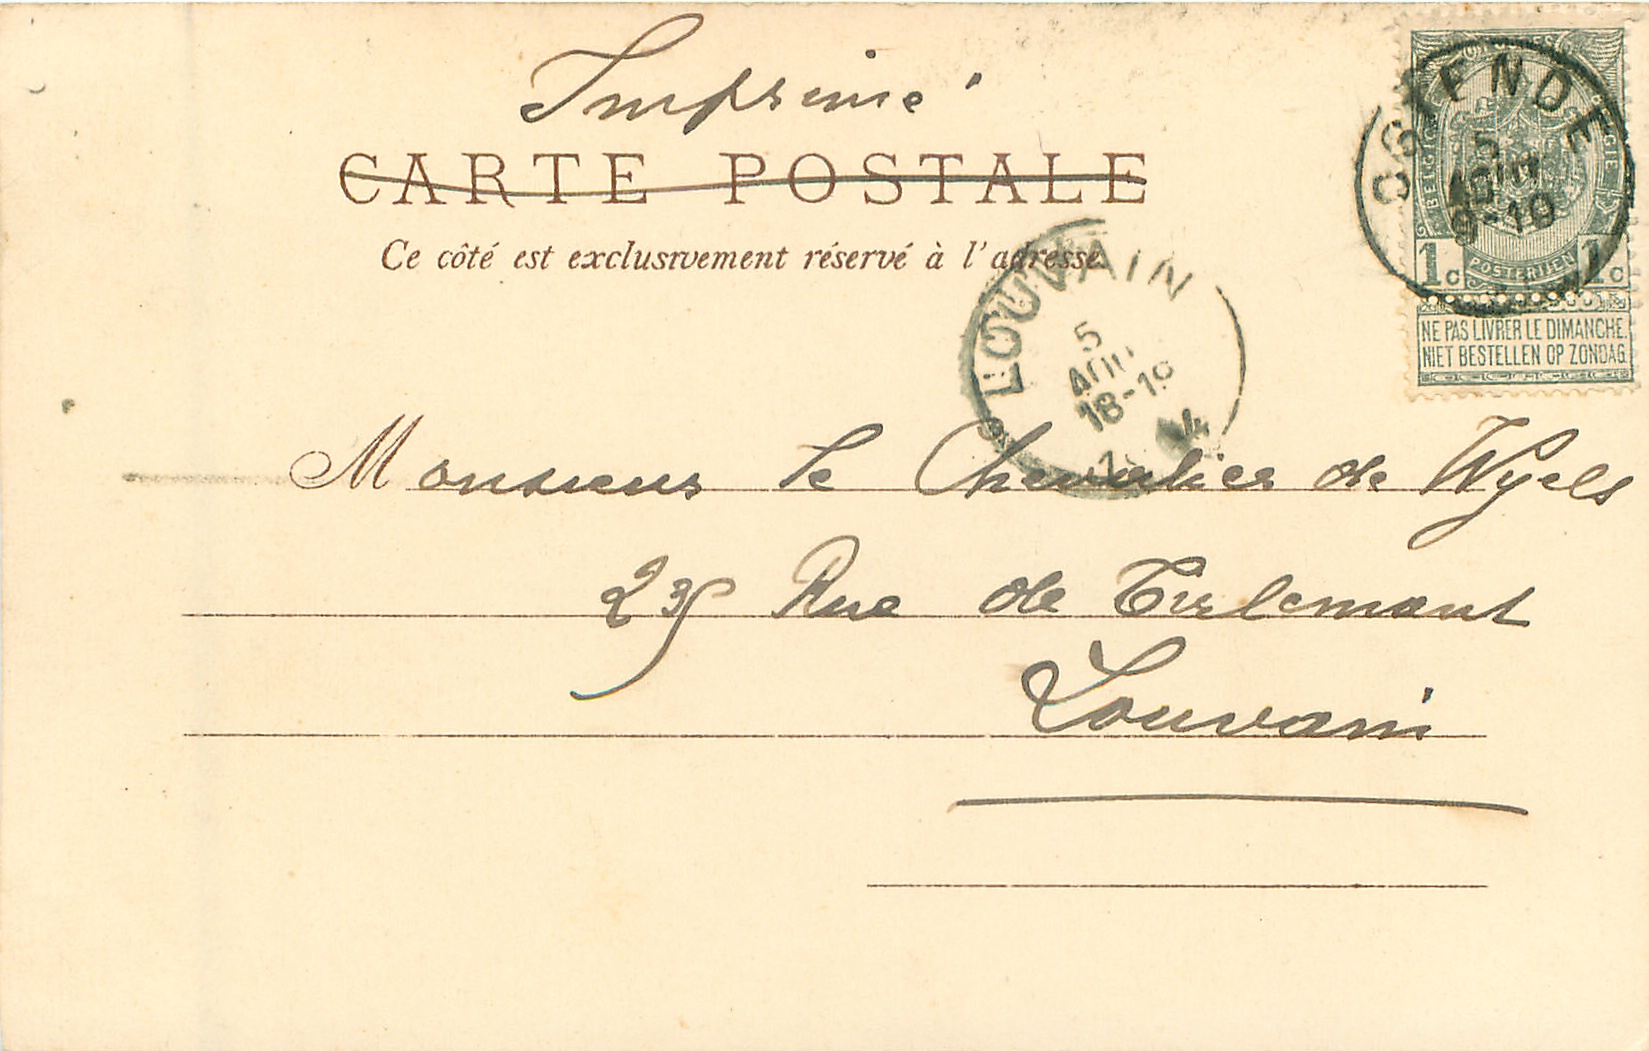 Imprimé
CARTE POSTALE
Ce côté est exclusivement réservé à l'adresse.
OSTENDE
5
AOUT
9-10
BELGIQUE
BELGIE
1c POSTERIJEN 1c
NE PAS LIVRER LE DIMANCHE.
NIET BESTELLEN OP ZONDAG.
LOUVAIN
5
AOU
18-19
Monsieur le Chevalier de Wyels
Rue de Tirlemont
Louvain